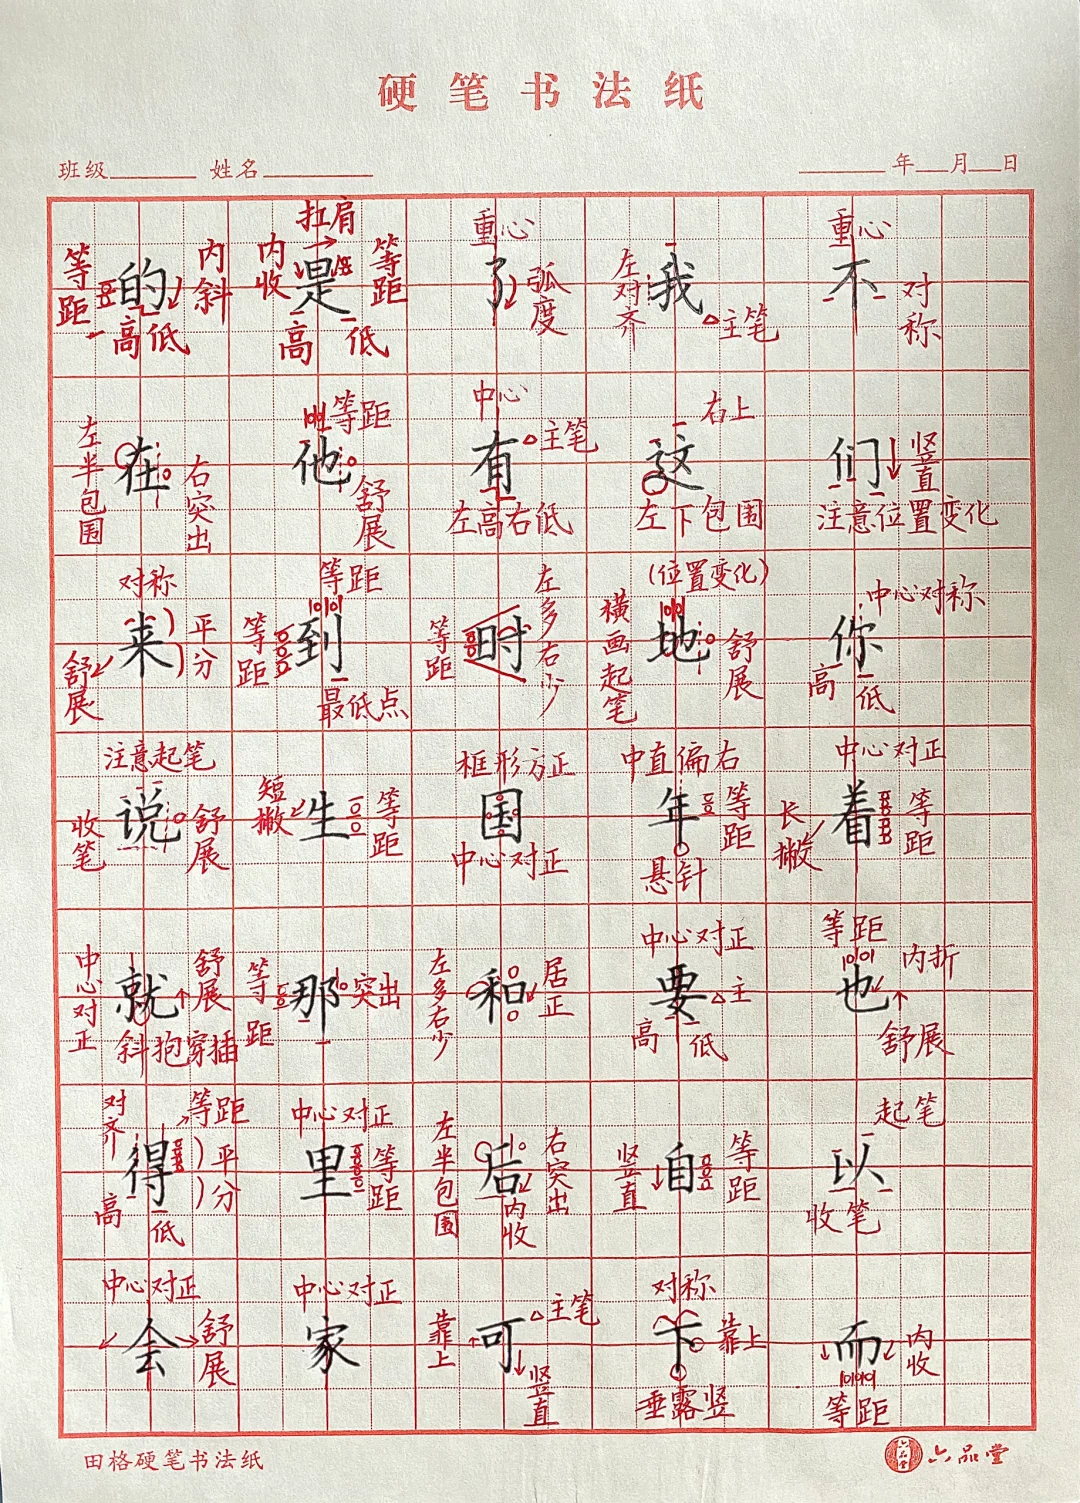 硬笔书法纸
班级 姓名 年 月 日
等距 的 内斜 高 低
扛肩 内收 是 等距 高 低
重心 了 弧度
左对齐 我 主笔
重心 不 对称
左半包围 在 右突出
等距 他 舒展
中心 有 主笔 左高右低
右上 这 左下包围
们 竖直 注意位置变化
对称 来 平分 舒展
等距 等距 到 最低点
等距 时 左多右少
(位置变化) 横画起笔 地 舒展
中心对称 你 高 低
注意起笔 收笔 说 舒展
短撇 生 等距
框形方正 国 中心对正
中直偏右 年 等距 悬针
中心对正 长撇 着 等距
中心对正 就 舒展 斜抱穿插
等距 那 突出
左多右少 和 居正
中心对正 要 主 高 低
等距 也 内折 舒展
对齐 等距 得 平分 高 低
中心对正 里 等距
左半包围 后 右突出 内收
竖直 自 等距
起笔 以 收笔
中心对正 会 舒展
中心对正 家
靠上 可 主笔 竖直
对称 下 靠上 垂露竖
而 内收 等距
田格硬笔书法纸
六品堂 六品堂